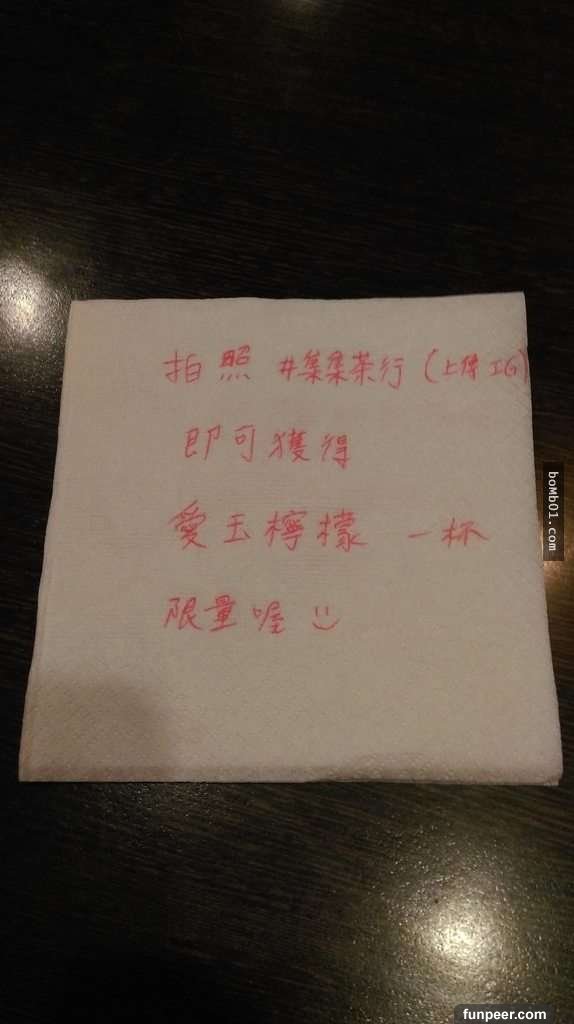 拍照 #集集茶行 (上傳IG)
即可獲得
愛玉檸檬 一杯
限量喔 :)
boMb01.com
funpeer.com